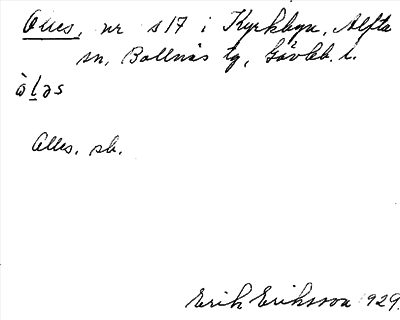 Olles, nr s 17 i Kyrkbyn, Alfta
sn, Bollnäs tg, Gävleb. l.
ò̀l̲əs
Olles, sb.
Erik Eriksson 1929.